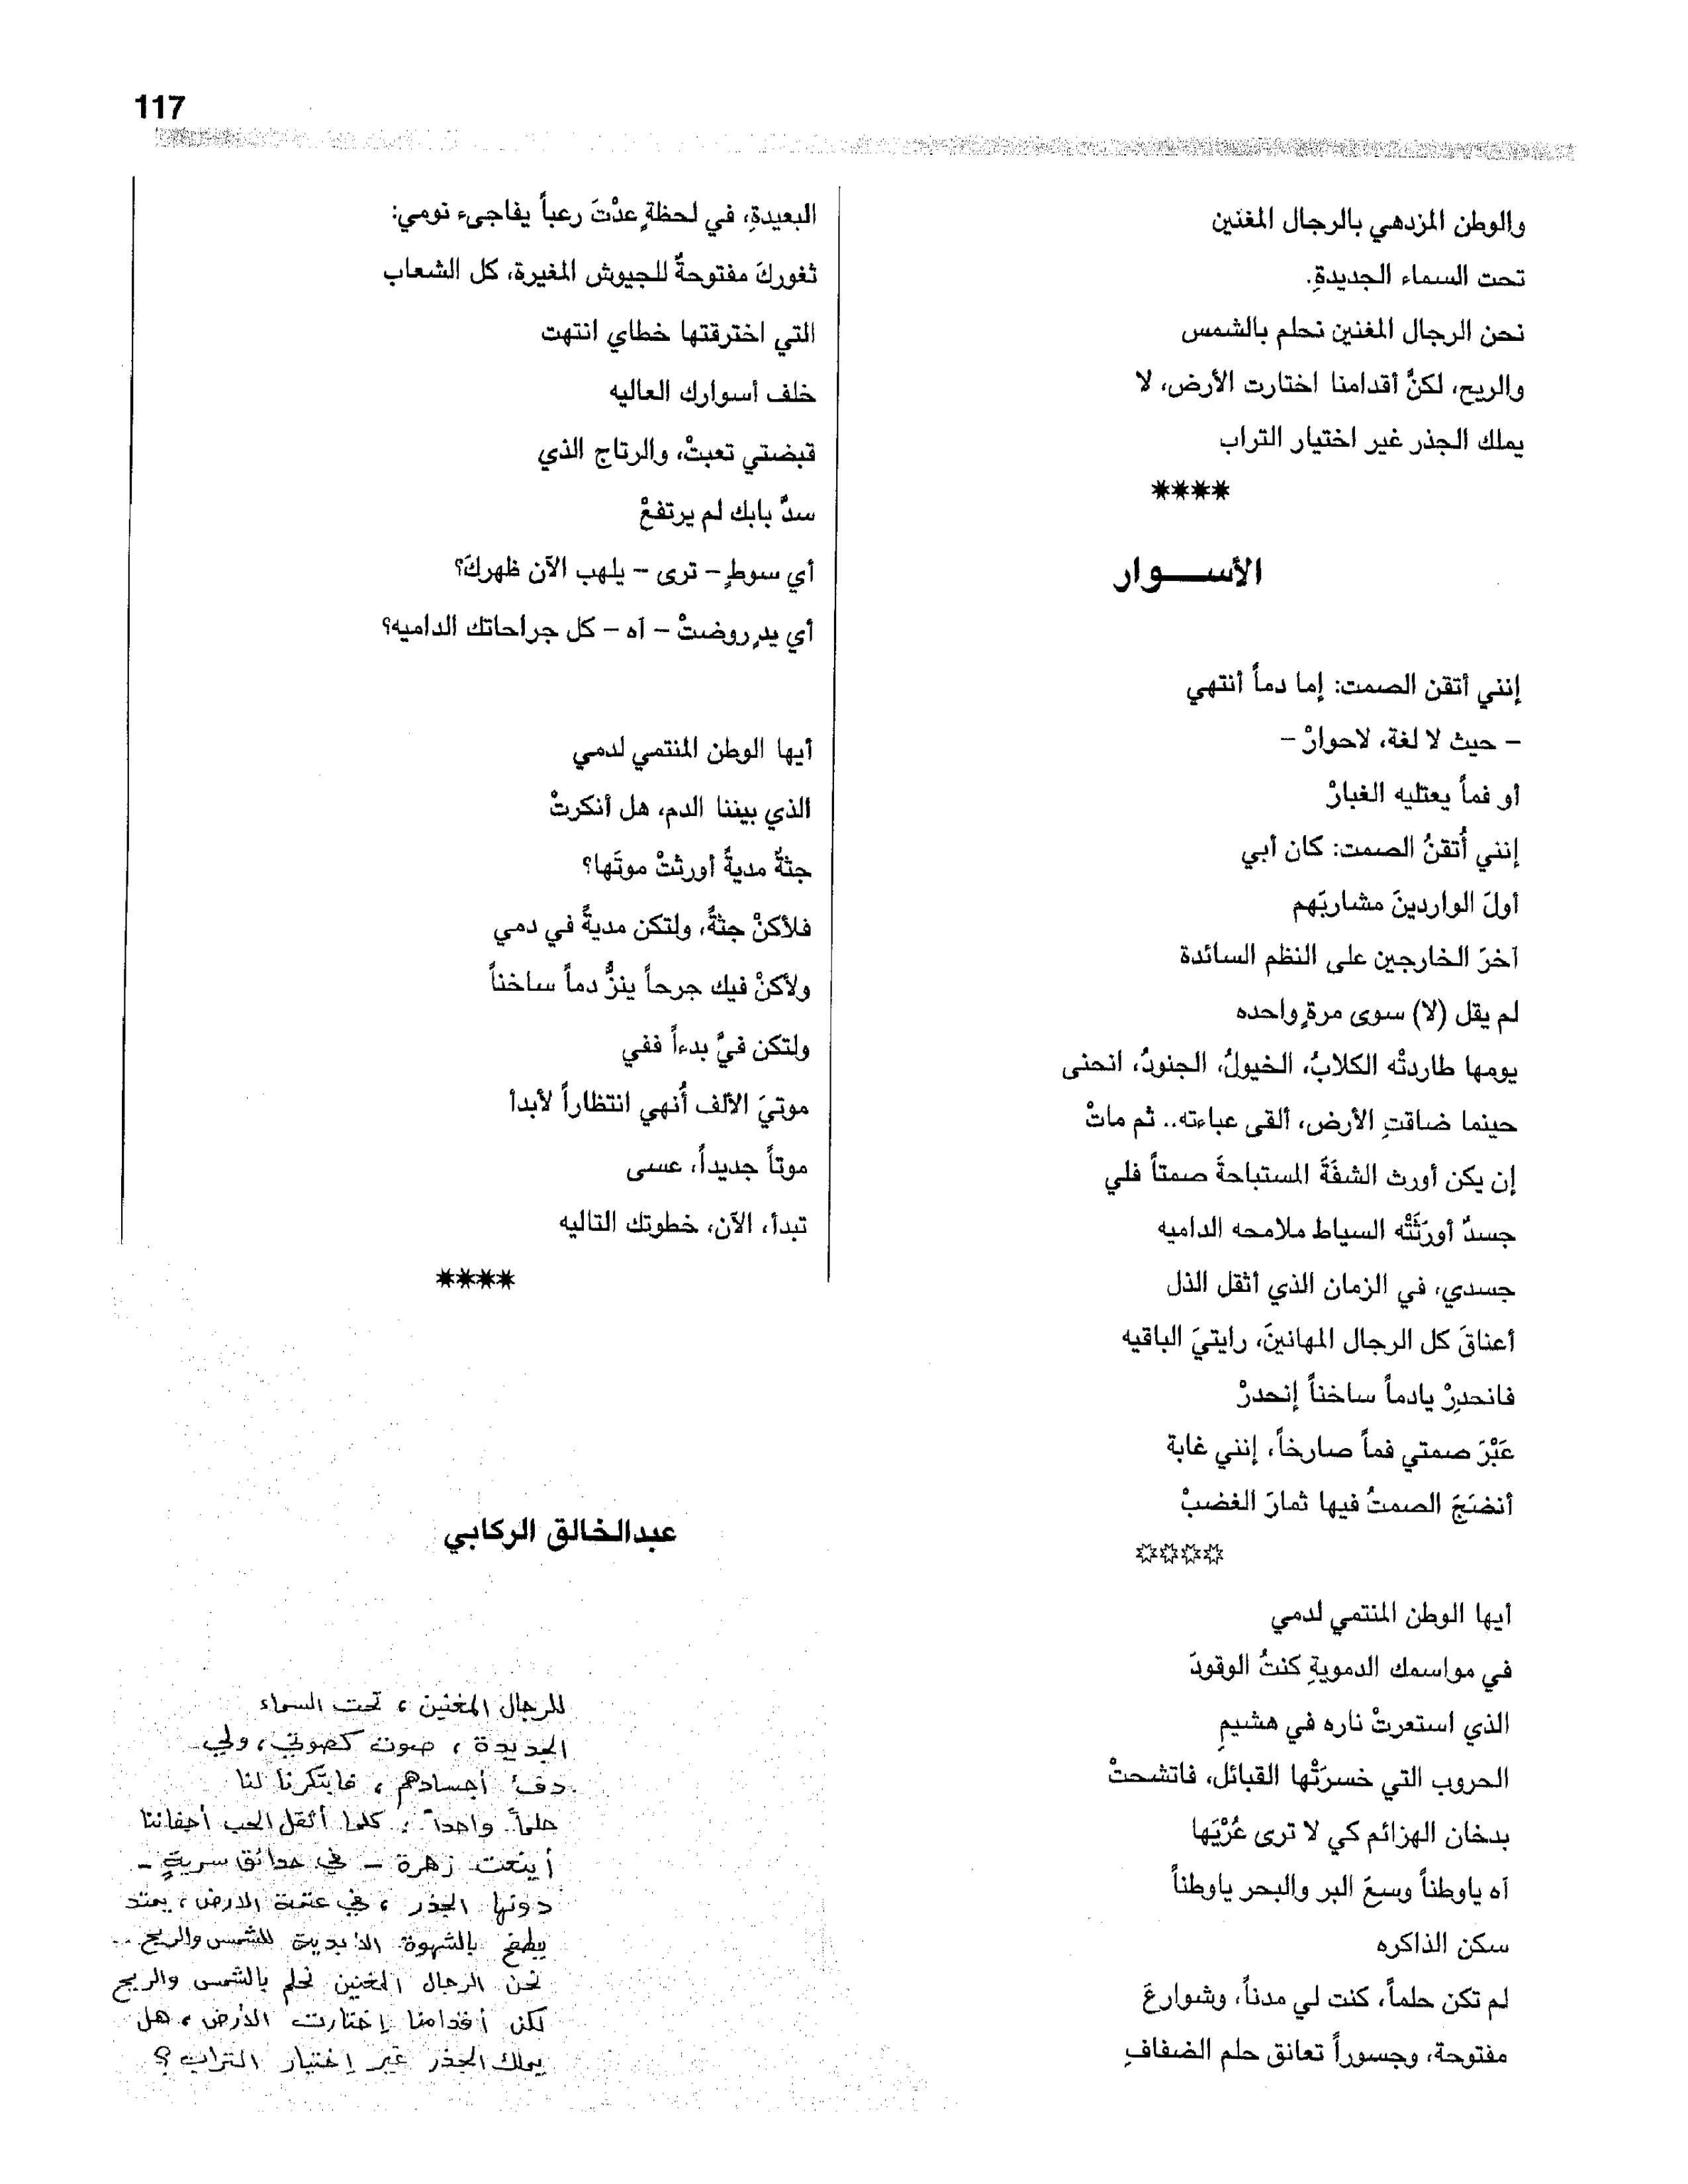 117
والوطن المزدهي بالرجال المغنين
تحت السماء الجديدةِ.
نحن الرجال المغنين نحلم بالشمس
والريح، لكنَّ أقدامنا اختارت الأرض، لا
يملك الجذر غير اختيار التراب
****
الأسـوار
إنني أتقن الصمت: إما دماً أنتهي
– حيث لا لغة، لاحوارْ –
أو فماً يعتليه الغبارْ
إنني أُتقنُ الصمت: كان أبي
أولَ الواردينَ مشاربَهم
آخرَ الخارجين على النظم السائدة
لم يقل (لا) سوى مرةٍ واحده
يومها طاردتْه الكلابُ، الخيولُ، الجنودُ، انحنى
حينما ضاقتِ الأرض، ألقى عباءته.. ثم ماتْ
إن يكن أورث الشفَةَ المستباحةَ صمتاً فلي
جسدٌ أورَثَتْه السياط ملامحه الداميه
جسدي، في الزمان الذي أثقل الذل
أعناقَ كل الرجال المهانينَ، رايتيَ الباقيه
فانحدِرْ يادماً ساخناً إنحدرْ
عَبْرَ صمتي فماً صارخاً، إنني غابة
أنضَجَ الصمتُ فيها ثمارَ الغضبْ
****
أيها الوطن المنتمي لدمي
في مواسمك الدمويةِ كنتُ الوقودَ
الذي استعرتْ ناره في هشيمِ
الحروب التي خسرَتْها القبائل، فاتشحتْ
بدخان الهزائم كي لا ترى عُرْيَها
آه ياوطناً وسعَ البر والبحر ياوطناً
سكن الذاكره
لم تكن حلماً، كنت لي مدناً، وشوارعَ
مفتوحة، وجسوراً تعانق حلم الضفافِ
البعيدةِ، في لحظةٍ عدْتَ رعباً يفاجىء نومي:
ثغوركَ مفتوحةٌ للجيوش المغيرة، كل الشعاب
التي اخترقتها خطاي انتهت
خلف أسوارك العاليه
قبضتي تعبتْ، والرتاج الذي
سدَّ بابك لم يرتفعْ
أي سوطٍ – ترى – يلهب الآن ظهركَ؟
أي يدٍ روضتْ – آه – كل جراحاتك الداميه؟
أيها الوطن المنتمي لدمي
الذي بيننا الدم، هل أنكرتْ
جثةٌ مديةً أورثتْ موتَها؟
فلأكنْ جثةً، ولتكن مديةً في دمي
ولأكنْ فيك جرحاً ينزُّ دماً ساخناً
ولتكن فيَّ بدءاً ففي
موتيَ الألف أُنهي انتظاراً لأبدأ
موتاً جديداً، عسى
تبدأ، الآن، خطوتك التاليه
****
عبدالخالق الركابي
للرجال المغنين، تحت السماء
الجديدة، صوت كصوتي، ولي
دفءُ أجسادهم، فابتكرنا لنا
حلماً واحداً: كلما أثقل الحب أجفاننا
أينعت زهرة – في حدائق سريةٍ –
دونها الجذر، في عتمة الارض، يمتد
يطفح بالشهوة الابدية للشمس والريح..
نحن الرجال المغنين نحلم بالشمس والريح
لكن أقدامنا إختارت الأرض، هل
يملك الجذر غير إختيار التراب؟